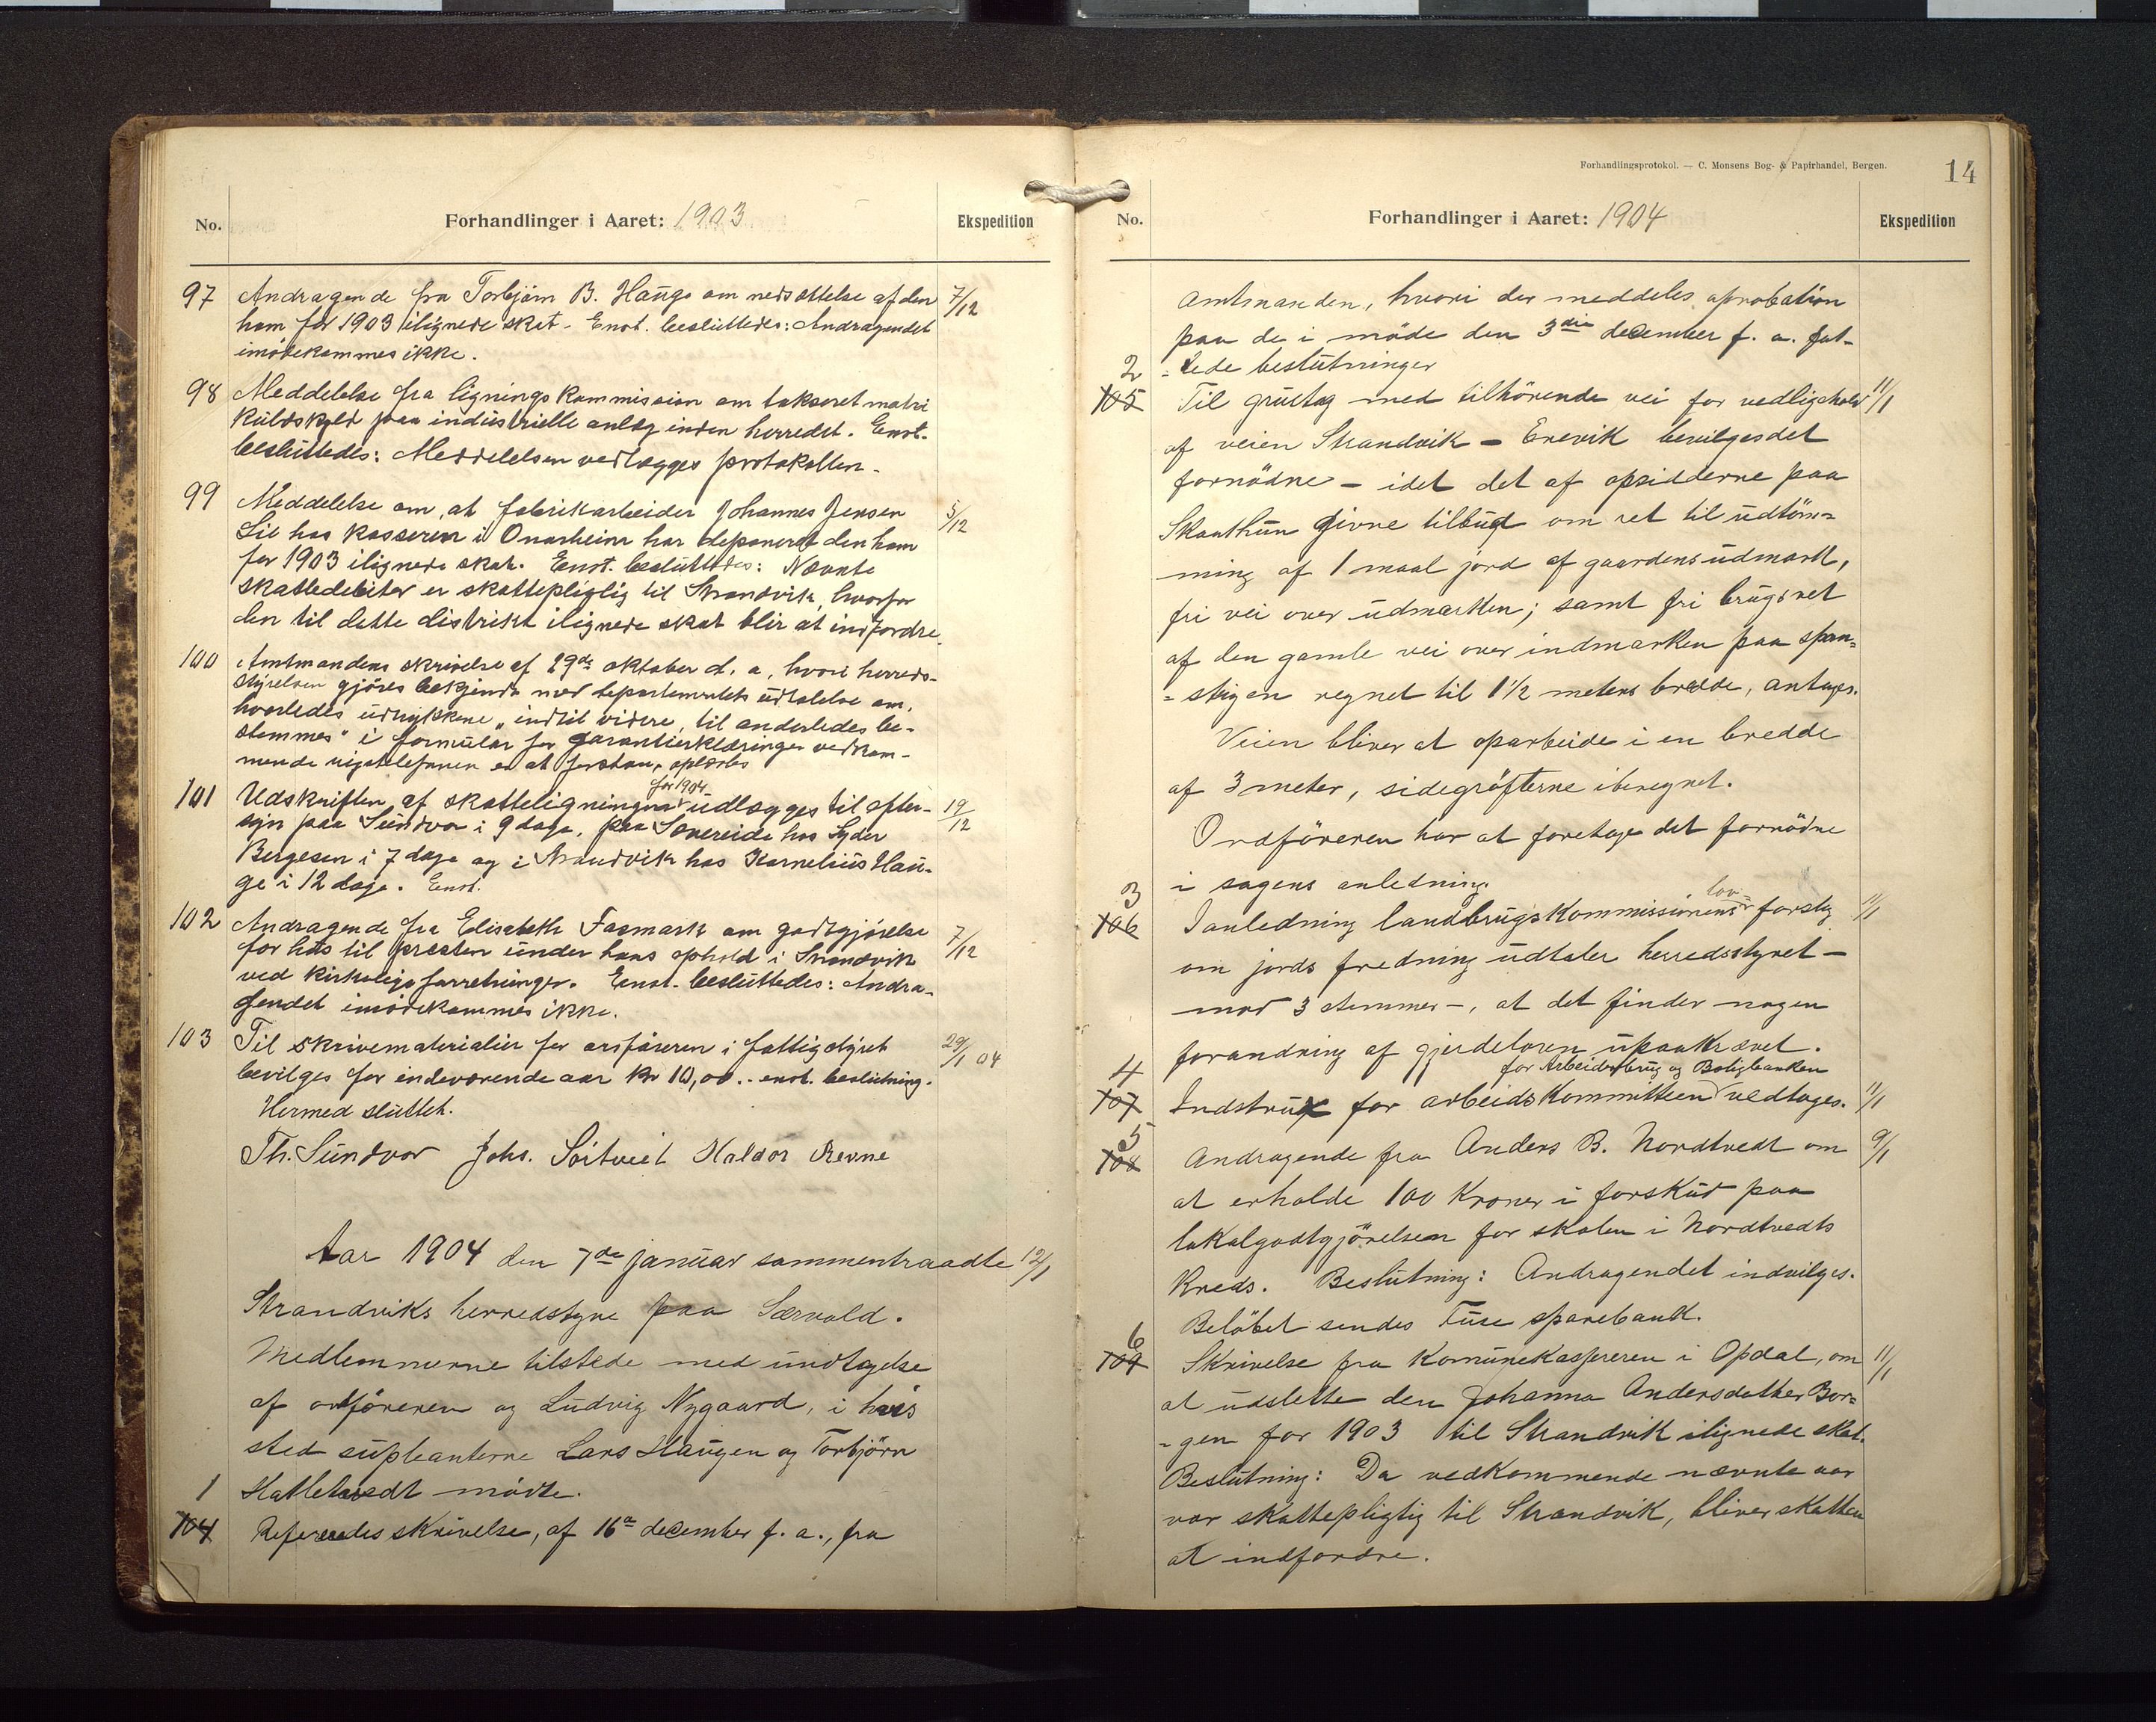 No. Forhandlinger i Aaret: 1903 Ekspedition
97 Andragende fra Torbjørn B. Hauge om nedsættelse af den 7/12
ham for 1903 ilignede skat. Enst. besluttedes: Andragendet
imødekommes ikke.
98 Meddelelse fra ligningskommission om takseret matri
kulsskyld paa industrielle anlæg inden herredet. Enst.
besluttedes: Meddelelsen vedlægges protokollen.
99 Meddelelse om, at fabrikarbeider Johannes Jensen 5/12
Lie hos kasseren i Onarheim har deponeret den ham
for 1903 ilignede skat. Enst. besluttedes: Nævnte
skattedebitor er skattepligtig til Strandvik, hvorfor
den til dette distrikt ilignede skat blir at indfordre.
100 Amtmandens skrivelse af 29de oktober d. a, hvori herreds-
styrelsen gjøres bekjendt med departementets udtalelse om,
hvorledes udtrykkene „indtil videre, til anderledes be-
stemmes" i formular for garantierklæringer vedkom-
mende rigstelefonen er at forstaa, oplæstes
101 Udskriften af skatteligningen for 1904 udlægges til efter- 19/12
syn paa Sundvor i 9 dage, paa Sævereide hos Syder
Bergesen i 7 dage og i Strandvik hos Kornelius Hau-
ge i 12 dage. Enst.
102 Andragende fra Elisabeth Fagmark om godtgjørelse 7/12
for hus til presten under hans ophold i Strandvik
ved kirkelige forretninger. Enst. besluttedes: Andra-
gendet imødekommes ikke.
103 Til skrivematerialier for ordføreren i fattigstyret 29/1 04
bevilges for indeværende aar kr 10,00.. enst. beslutning.
Hermed sluttet.
Th. Sundvor Johs. Söitveit Haldor Revne
Aar 1904 den 7de januar sammentraadte 12/1
Strandviks herredstyre paa Sævold.
Medlemmerne tilstede med undtagelse
af ordföreren og Ludvig Nygaard, i hvis
sted supleanterne Lars Haugen og Torbjörn
1 Hatletvedt mödte.
104 Refereredes skrivelse, af 16de december f. a., fra
Forhandlingsprotokol. — C. Monsens Bog- & Papirhandel, Bergen. 14
No. Forhandlinger i Aaret: 1904 Ekspedition
amtmanden, hvori der meddeles aprobation
paa de i möde den 3die december f. a. fat-
2 =tede beslutninger
105 Til grustag med tilhörende vei for vedligehold 11/1
af veien Strandvik – Erevik bevilges det
fornödne – idet det af opsidderne paa
Skaathun givne tilbud om ret til udtöm=
ming af 1 maal jord af gaardens udmark,
fri vei over udmarken; samt fri brugsret
af den gamle vei over indmarken paa span=
=stigen regnet til 1 1/2 meters bredde, antages.
Veien bliver at oparbeide i en bredde
af 3 meter, sidegröfterne iberegnet.
Ordföreren har at foretage det fornödne
3 i sagens anledning.
106 I anledning landbrugskommissionens lov= forslag 11/1
om jords fredning udtaler herredsstyret –
mod 3 stemmer –, at det finder nogen
forandring af gjerdeloven upaakrævet.
4 for Arbeiderbrug og Boligbanken
107 Instrux for arbeidskommitteen vedtages. 11/1
5
108 Andragende fra Anders B. Nordtvedt om 9/1
at erholde 100 Kroner i forskud paa
lokalgodtgjörelsen for skolen i Nordtvedts
Kreds. Beslutning: Andragendet indvilges.
Belöbet sendes Fuse sparebank.
6
109 Skrivelse fra Komunekassereren i Opdal, om 11/1
at udslette den Johanna Andersdatter Bor=
=gen for 1903 til Strandvik ilignede skat.
Beslutning: Da vedkommende nævnte aar
var skattepligtig til Strandvik, bliver skatten
at indfordre.